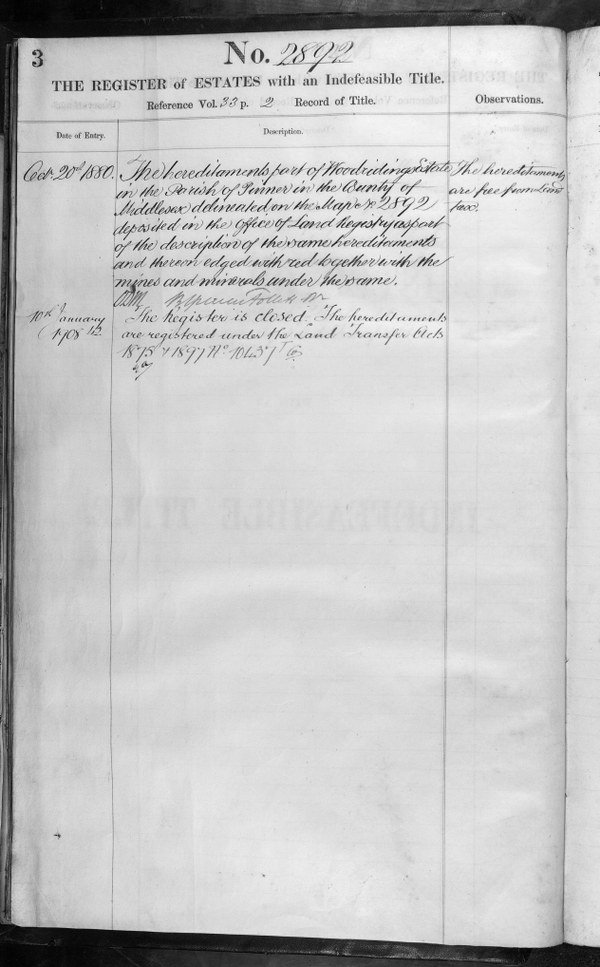 3
No. 2892
THE REGISTER of ESTATES with an Indefeasible Title.
Reference Vol. 33 p. 2 Record of Title.
Observations.
Date of Entry.
Description.
Octr 20th 1880.
The hereditaments part of Woodridings Estate
in the Parish of Pinner in the County of
Middlesex delineated on the Map No 2892
deposited in the Office of Land Registry as part
of the description of the same hereditaments
and thereon edged with red together with the
mines and minerals under the same.
The hereditaments
are free from Land
Tax.
10th January
1908
The Register is closed. The hereditaments
are registered under the Land Transfer Acts
1875 & 1897 No